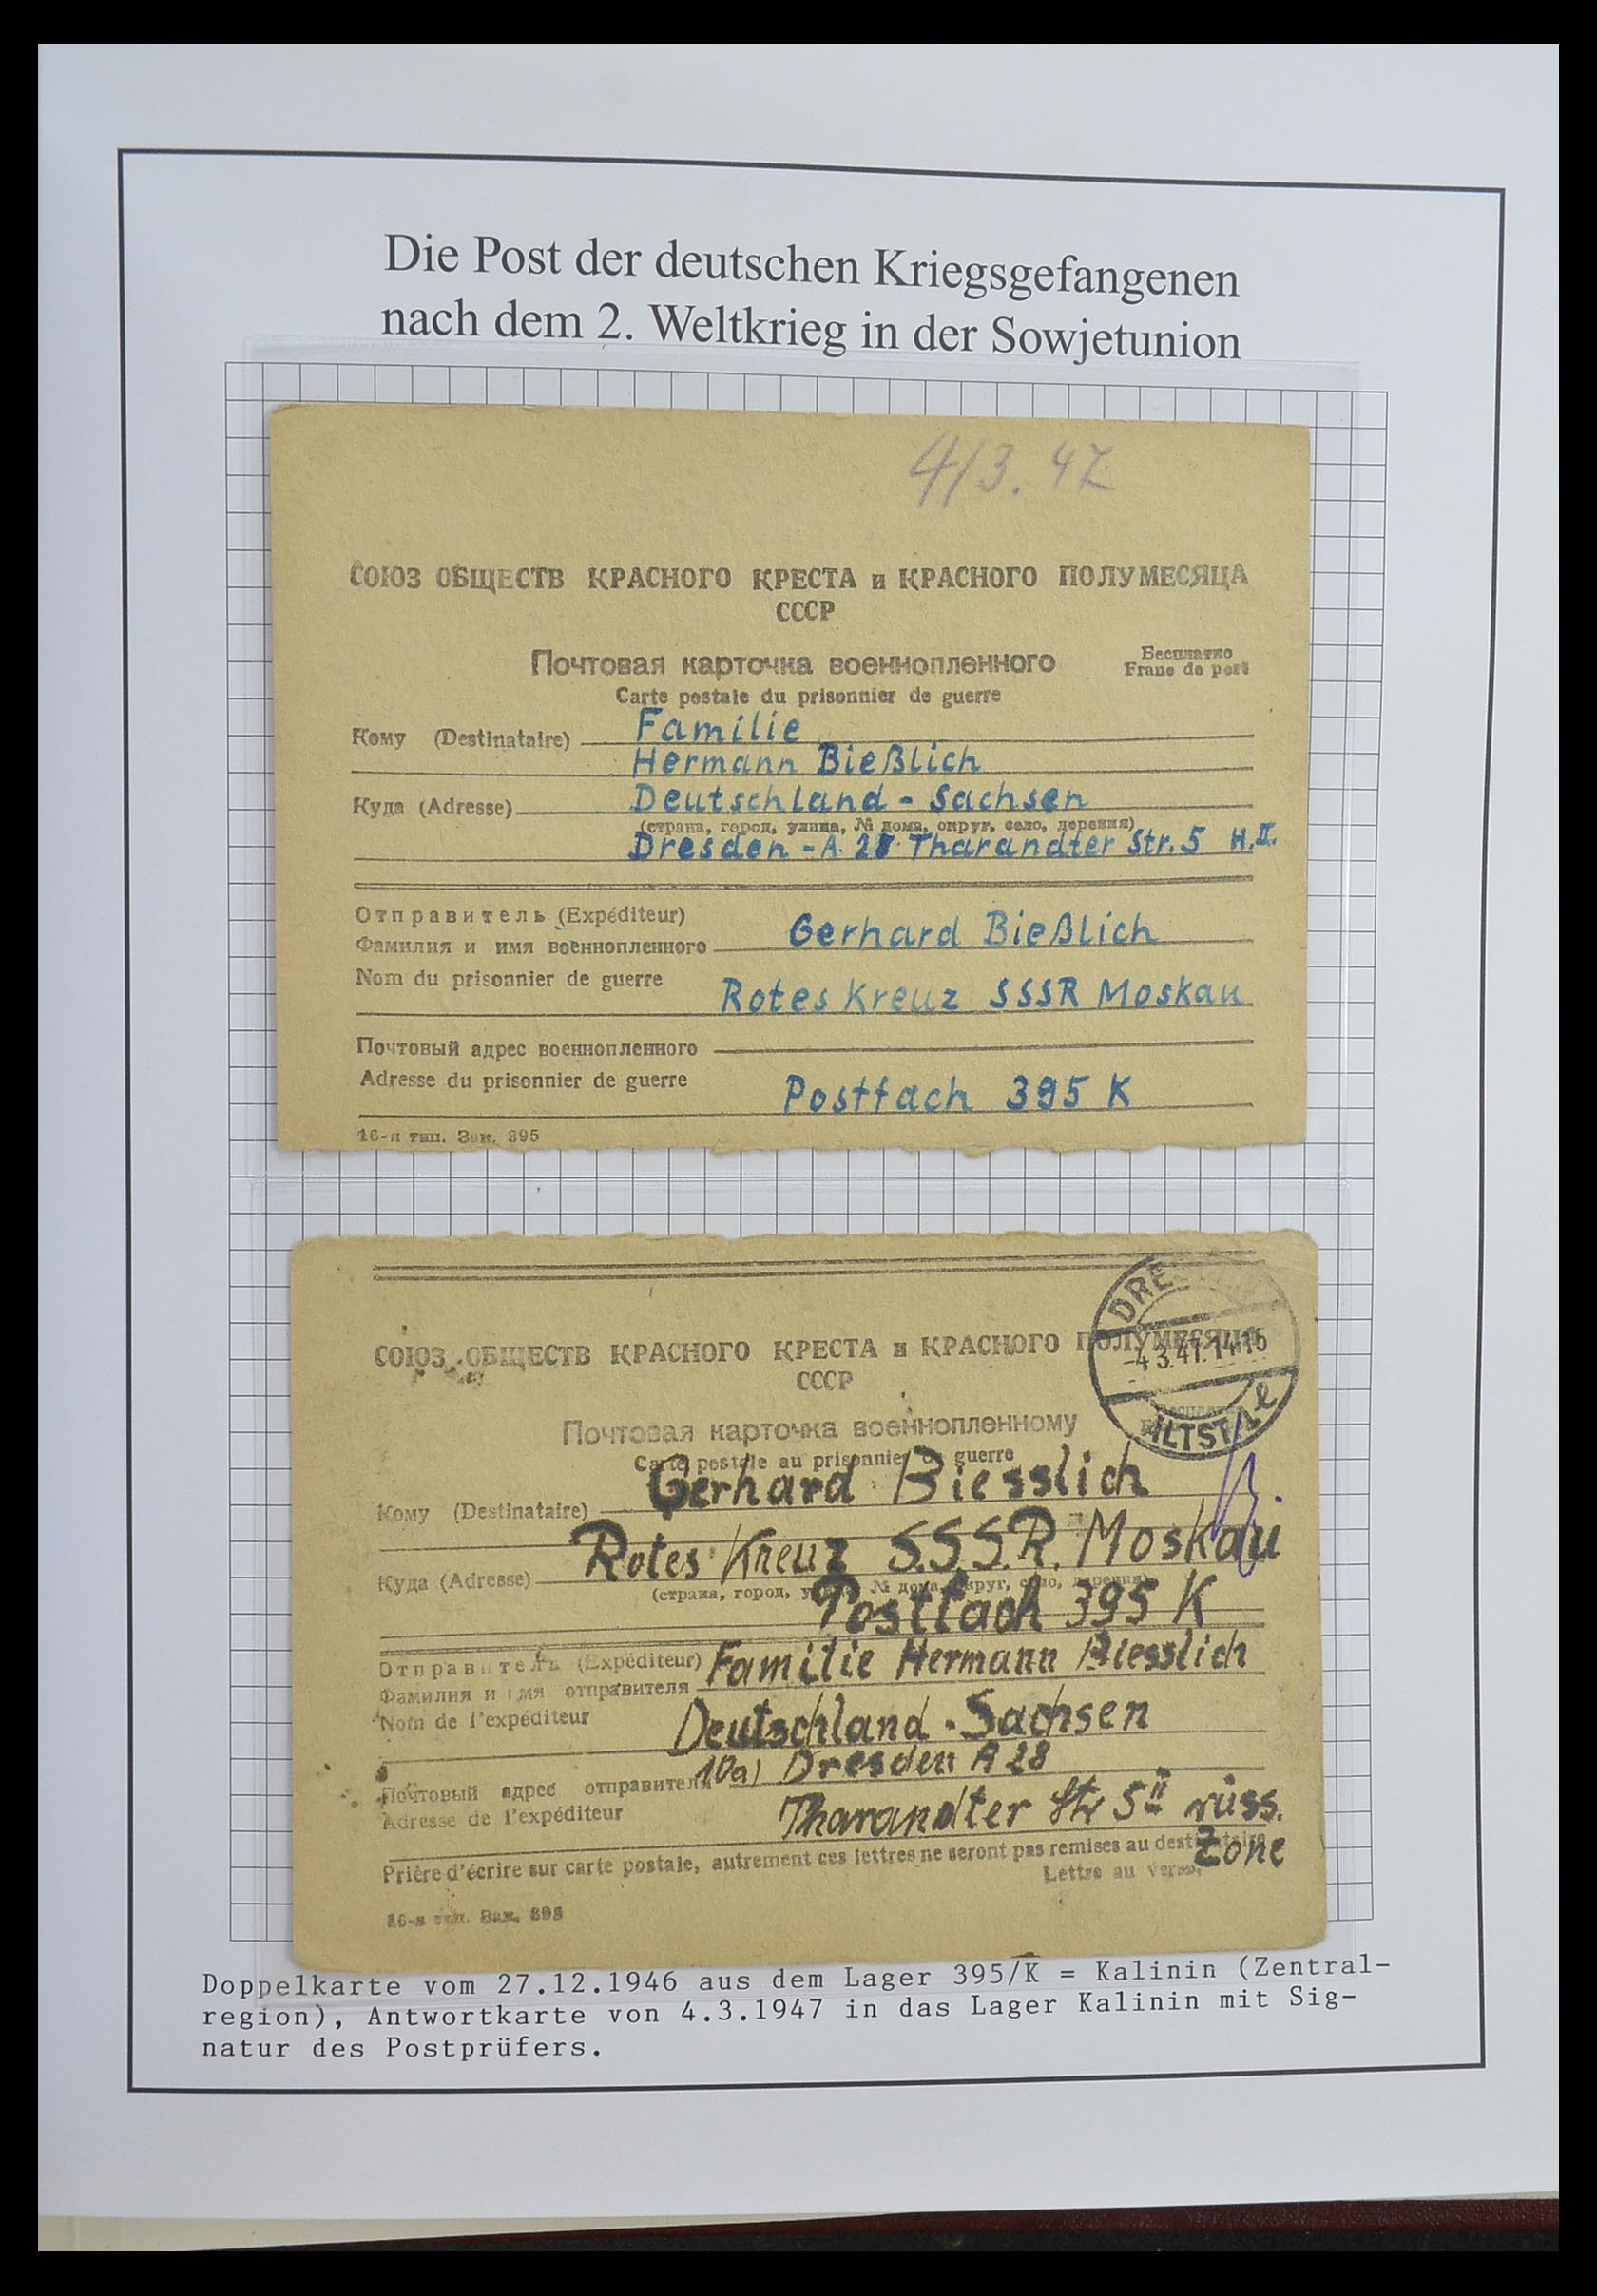 Die Post der deutschen Kriegsgefangenen
nach dem 2. Weltkrieg in der Sowjetunion
4/3. 47
СОЮЗ ОБЩЕСТВ КРАСНОГО КРЕСТА и КРАСНОГО ПОЛУМЕСЯЦА
СССР
Почтовая карточка военнопленного
Бесплатно
Carte postale du prisonnier de guerre
Franc de port
Кому (Destinataire) Familie
Hermann Bießlich
Куда (Adresse) Deutschland - Sachsen
(страна, город, улица, № дома, округ, село, деревня)
Dresden - A. 28 Tharandter Str. 5 H.II.
Отправитель (Expéditeur)
Фамилия и имя военнопленного Gerhard Bießlich
Nom du prisonnier de guerre
Rotes Kreuz SSSR Moskau
Почтовый адрес военнопленного
Adresse du prisonnier de guerre
Postfach 395 K
16-я тип. Зак. 395
DRE
СОЮЗ ОБЩЕСТВ КРАСНОГО КРЕСТА и КРАСНОГО ПОЛУМЕСЯЦА
-4.3.47.14-15
СССР
ALTST
Почтовая карточка военнопленному
Carte postale au prisonnier guerre
Кому (Destinataire) Gerhard Biesslich
Rotes Kreuz S.S.S.R. Moskau
Куда (Adresse)
(страна, город, № дома, округ, село, деревня)
Postfach 395 K
Отправитель (Expéditeur) Familie Hermann Biesslich
Фамилия и имя отправителя
Nom de l'expéditeur
Deutschland - Sachsen
10a) Dresden A 28
Почтовый адрес отправителя
Adresse de l'expéditeur
Tharandter Str 5 II russ.
Zone
Prière d'écrire sur carte postale, autrement ces lettres ne seront pas remises au destinataire
Lettre au verso.
16-я тип. Зак. 395
Doppelkarte vom 27.12.1946 aus dem Lager 395/K = Kalinin (Zentral-
region), Antwortkarte von 4.3.1947 in das Lager Kalinin mit Sig-
natur des Postprüfers.